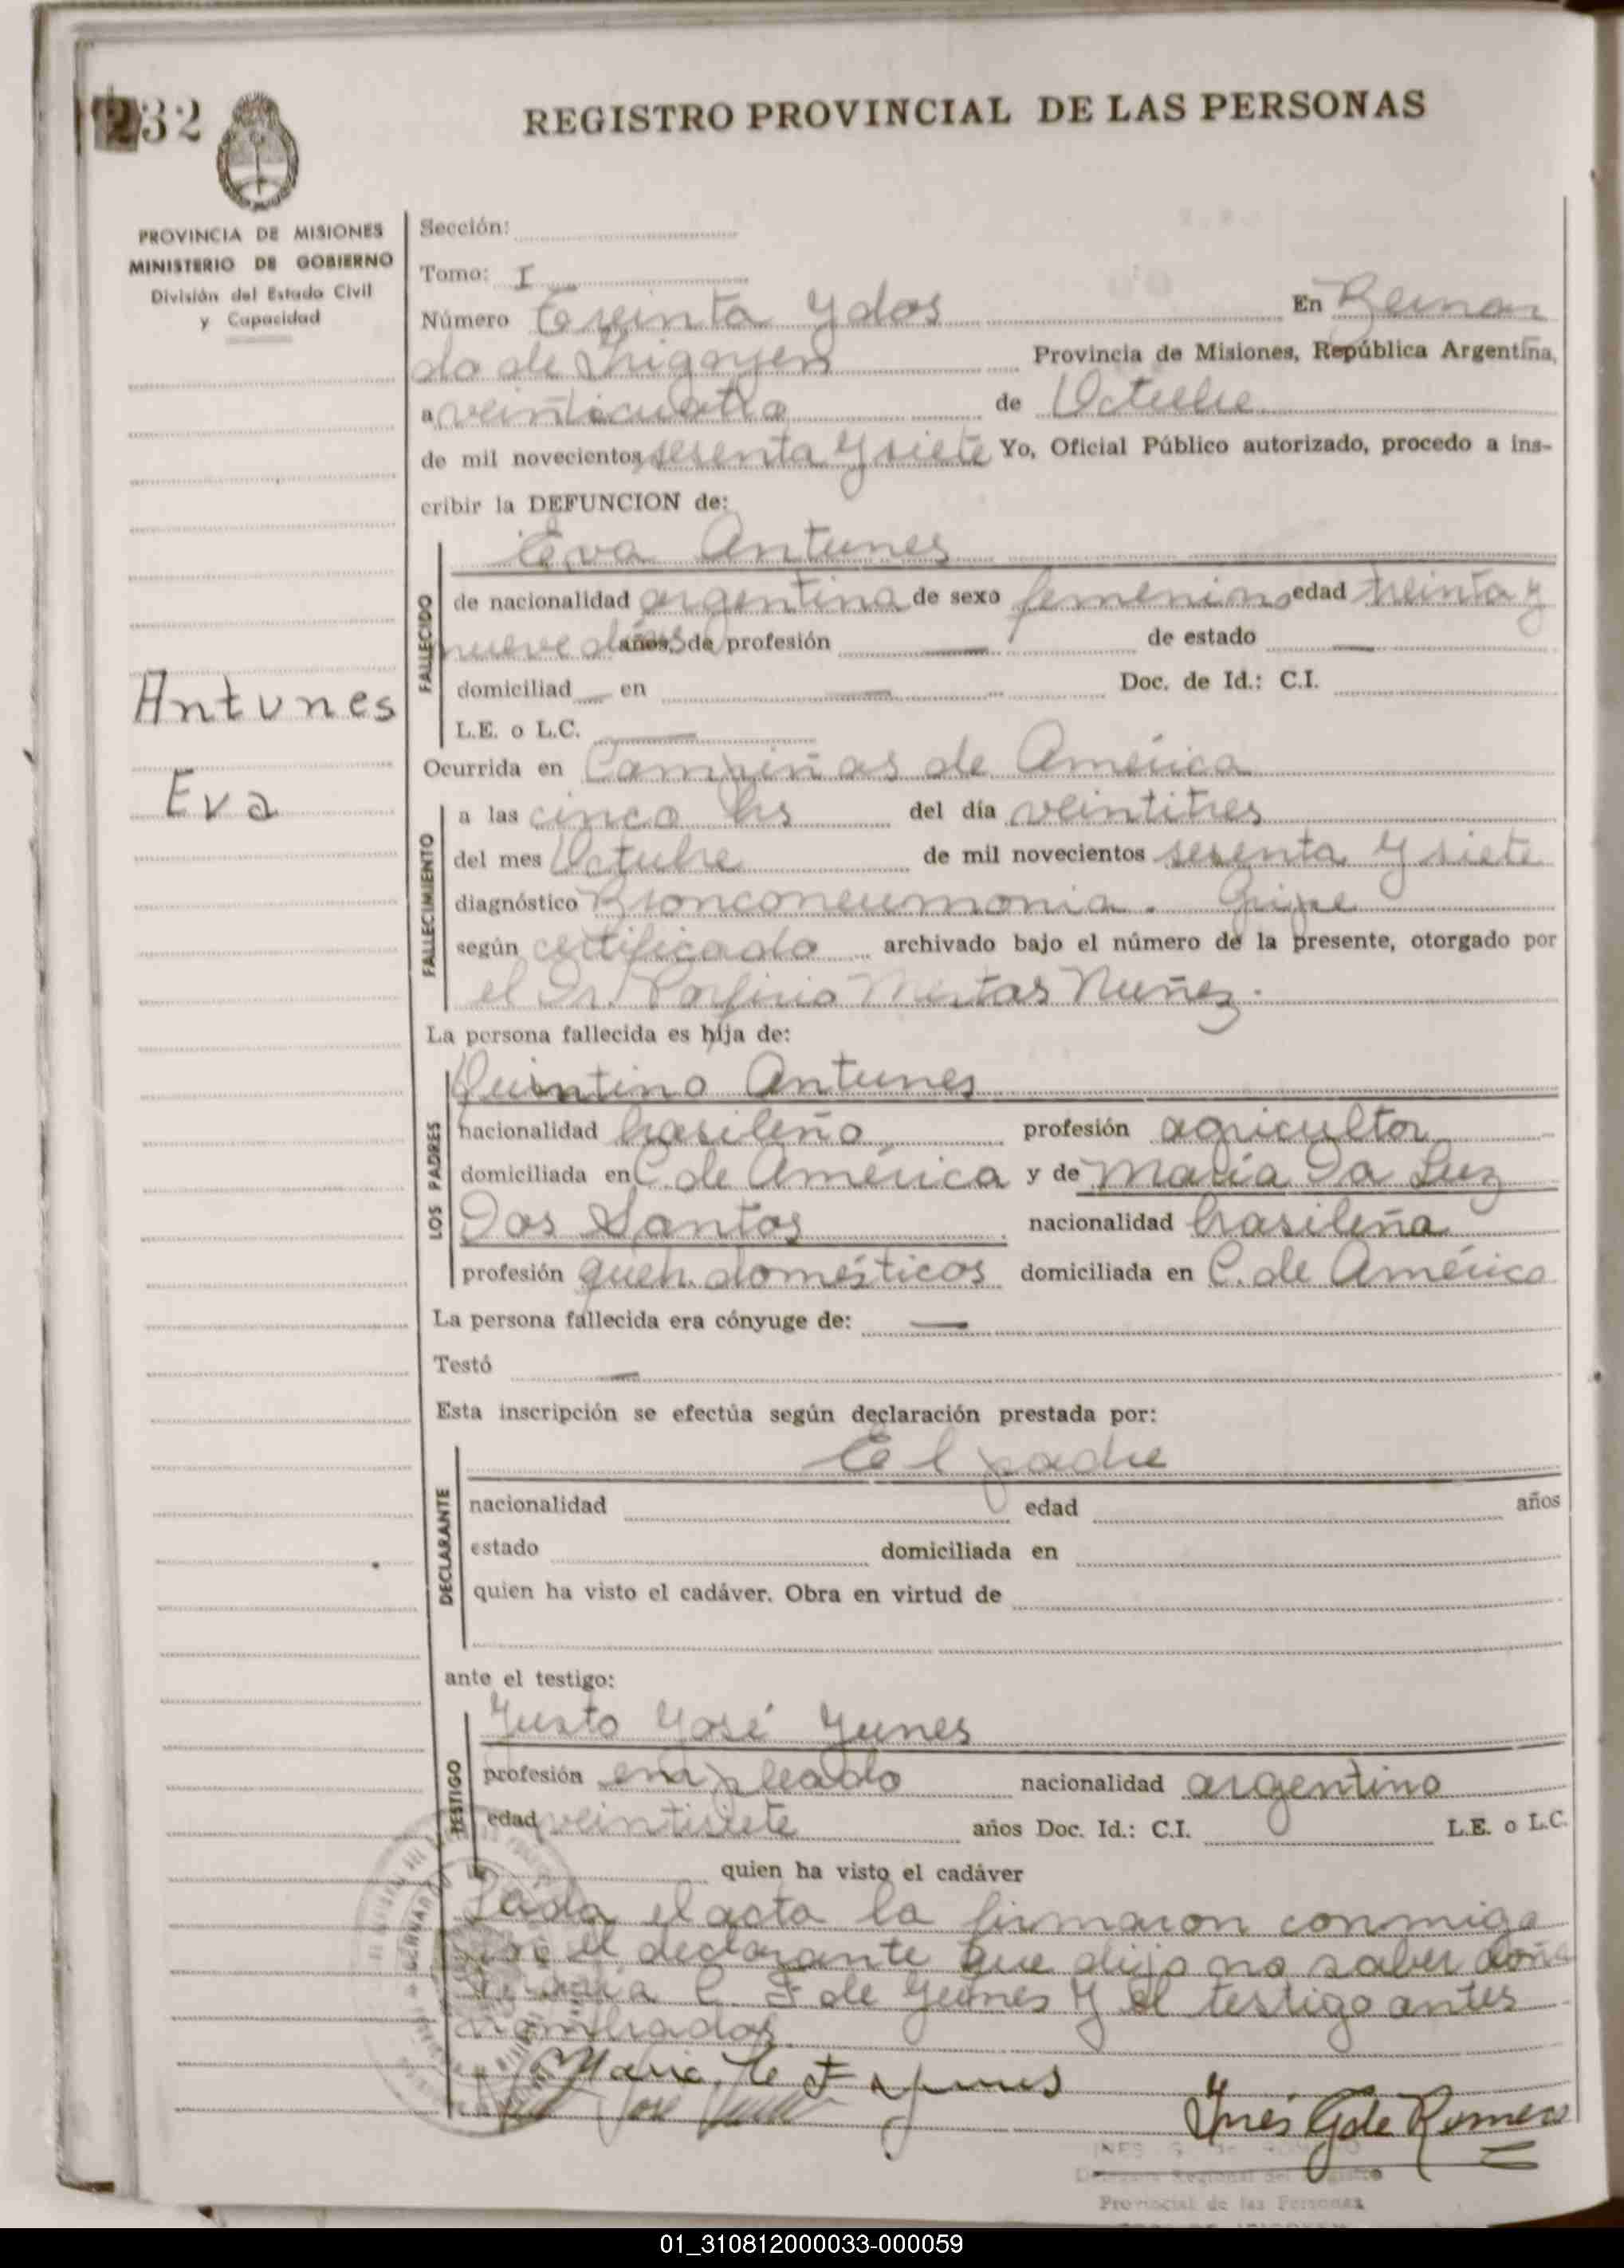 232
REGISTRO PROVINCIAL DE LAS PERSONAS
PROVINCIA DE MISIONES
MINISTERIO DE GOBIERNO
División del Estado Civil
y Capacidad
Antunes
Eva
Sección:
Tomo: I
Número Treinta y dos En Bernar
do de Irigoyen Provincia de Misiones, República Argentina,
a veinticuatro de Octubre
de mil novecientos sesenta y siete Yo, Oficial Público autorizado, procedo a ins-
cribir la DEFUNCION de:
Eva Antunes
FALLECIDO
de nacionalidad argentina de sexo femenino edad treinta y
nueve días años, de profesión — de estado —
domiciliad en — Doc. de Id.: C.I.
L.E. o L.C. —
Ocurrida en Campiñas de América
FALLECIMIENTO
a las cinco hs del día veintitres
del mes Octubre de mil novecientos sesenta y siete
diagnóstico Bronconeumonia. Gripe
según certificado archivado bajo el número de la presente, otorgado por
el Dr. Porfirio Mertas Nuñez.
La persona fallecida es hija de:
LOS PADRES
Quintino Antunes
nacionalidad brasileño profesión agricultor
domiciliada en C. de América y de María Da Luz
Dos Santos nacionalidad brasileña
profesión queh. domésticos domiciliada en C. de América
La persona fallecida era cónyuge de: —
Testó —
Esta inscripción se efectúa según declaración prestada por:
El padre
DECLARANTE
nacionalidad edad años
estado domiciliada en
quien ha visto el cadáver. Obra en virtud de
ante el testigo:
TESTIGO
Justo José Yunes
profesión empleado nacionalidad argentino
edad veintisiete años Doc. Id.: C.I. L.E. o L.C.
quien ha visto el cadáver
Leída el acta la firmaron conmigo
por el declarante que dijo no saber doña
María C. F de Yunes y el testigo antes
nombrados
María C. F Yunes
José
Inés G de Romero
INES G. de ROMERO
Delegada Regional del Registro
Provincial de las Personas
01_310812000033-000059